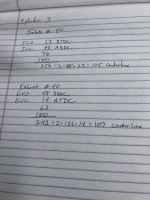 Cylinder 3
Intake 0.40
EVO 23 BTDC
IVC 53 ABDC
78
180
258 ÷ 2 = 129 - 23 = 105 Centerline
Exhaust 0.40
EVO 48 BBDC
EVC 14 ATDC
62
180
242 ÷ 2 = 121 - 14 = 107 Centerline